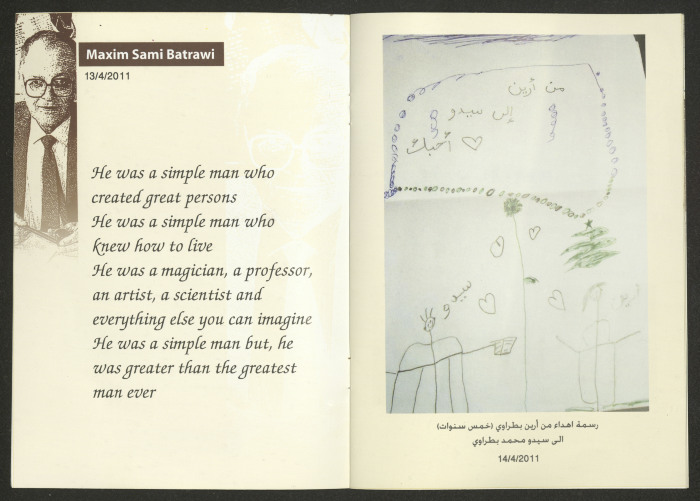 Maxim Sami Batrawi
13/4/2011
He was a simple man who
created great persons
He was a simple man who
knew how to live
He was a magician, a professor,
an artist, a scientist and
everything else you can imagine
He was a simple man but, he
was greater than the greatest
man ever
من أرين
إلى سيدو
أحبك
سيدو
رسمة اهداء من أرين بطراوي (خمس سنوات)
الى سيدو محمد بطراوي
14/4/2011